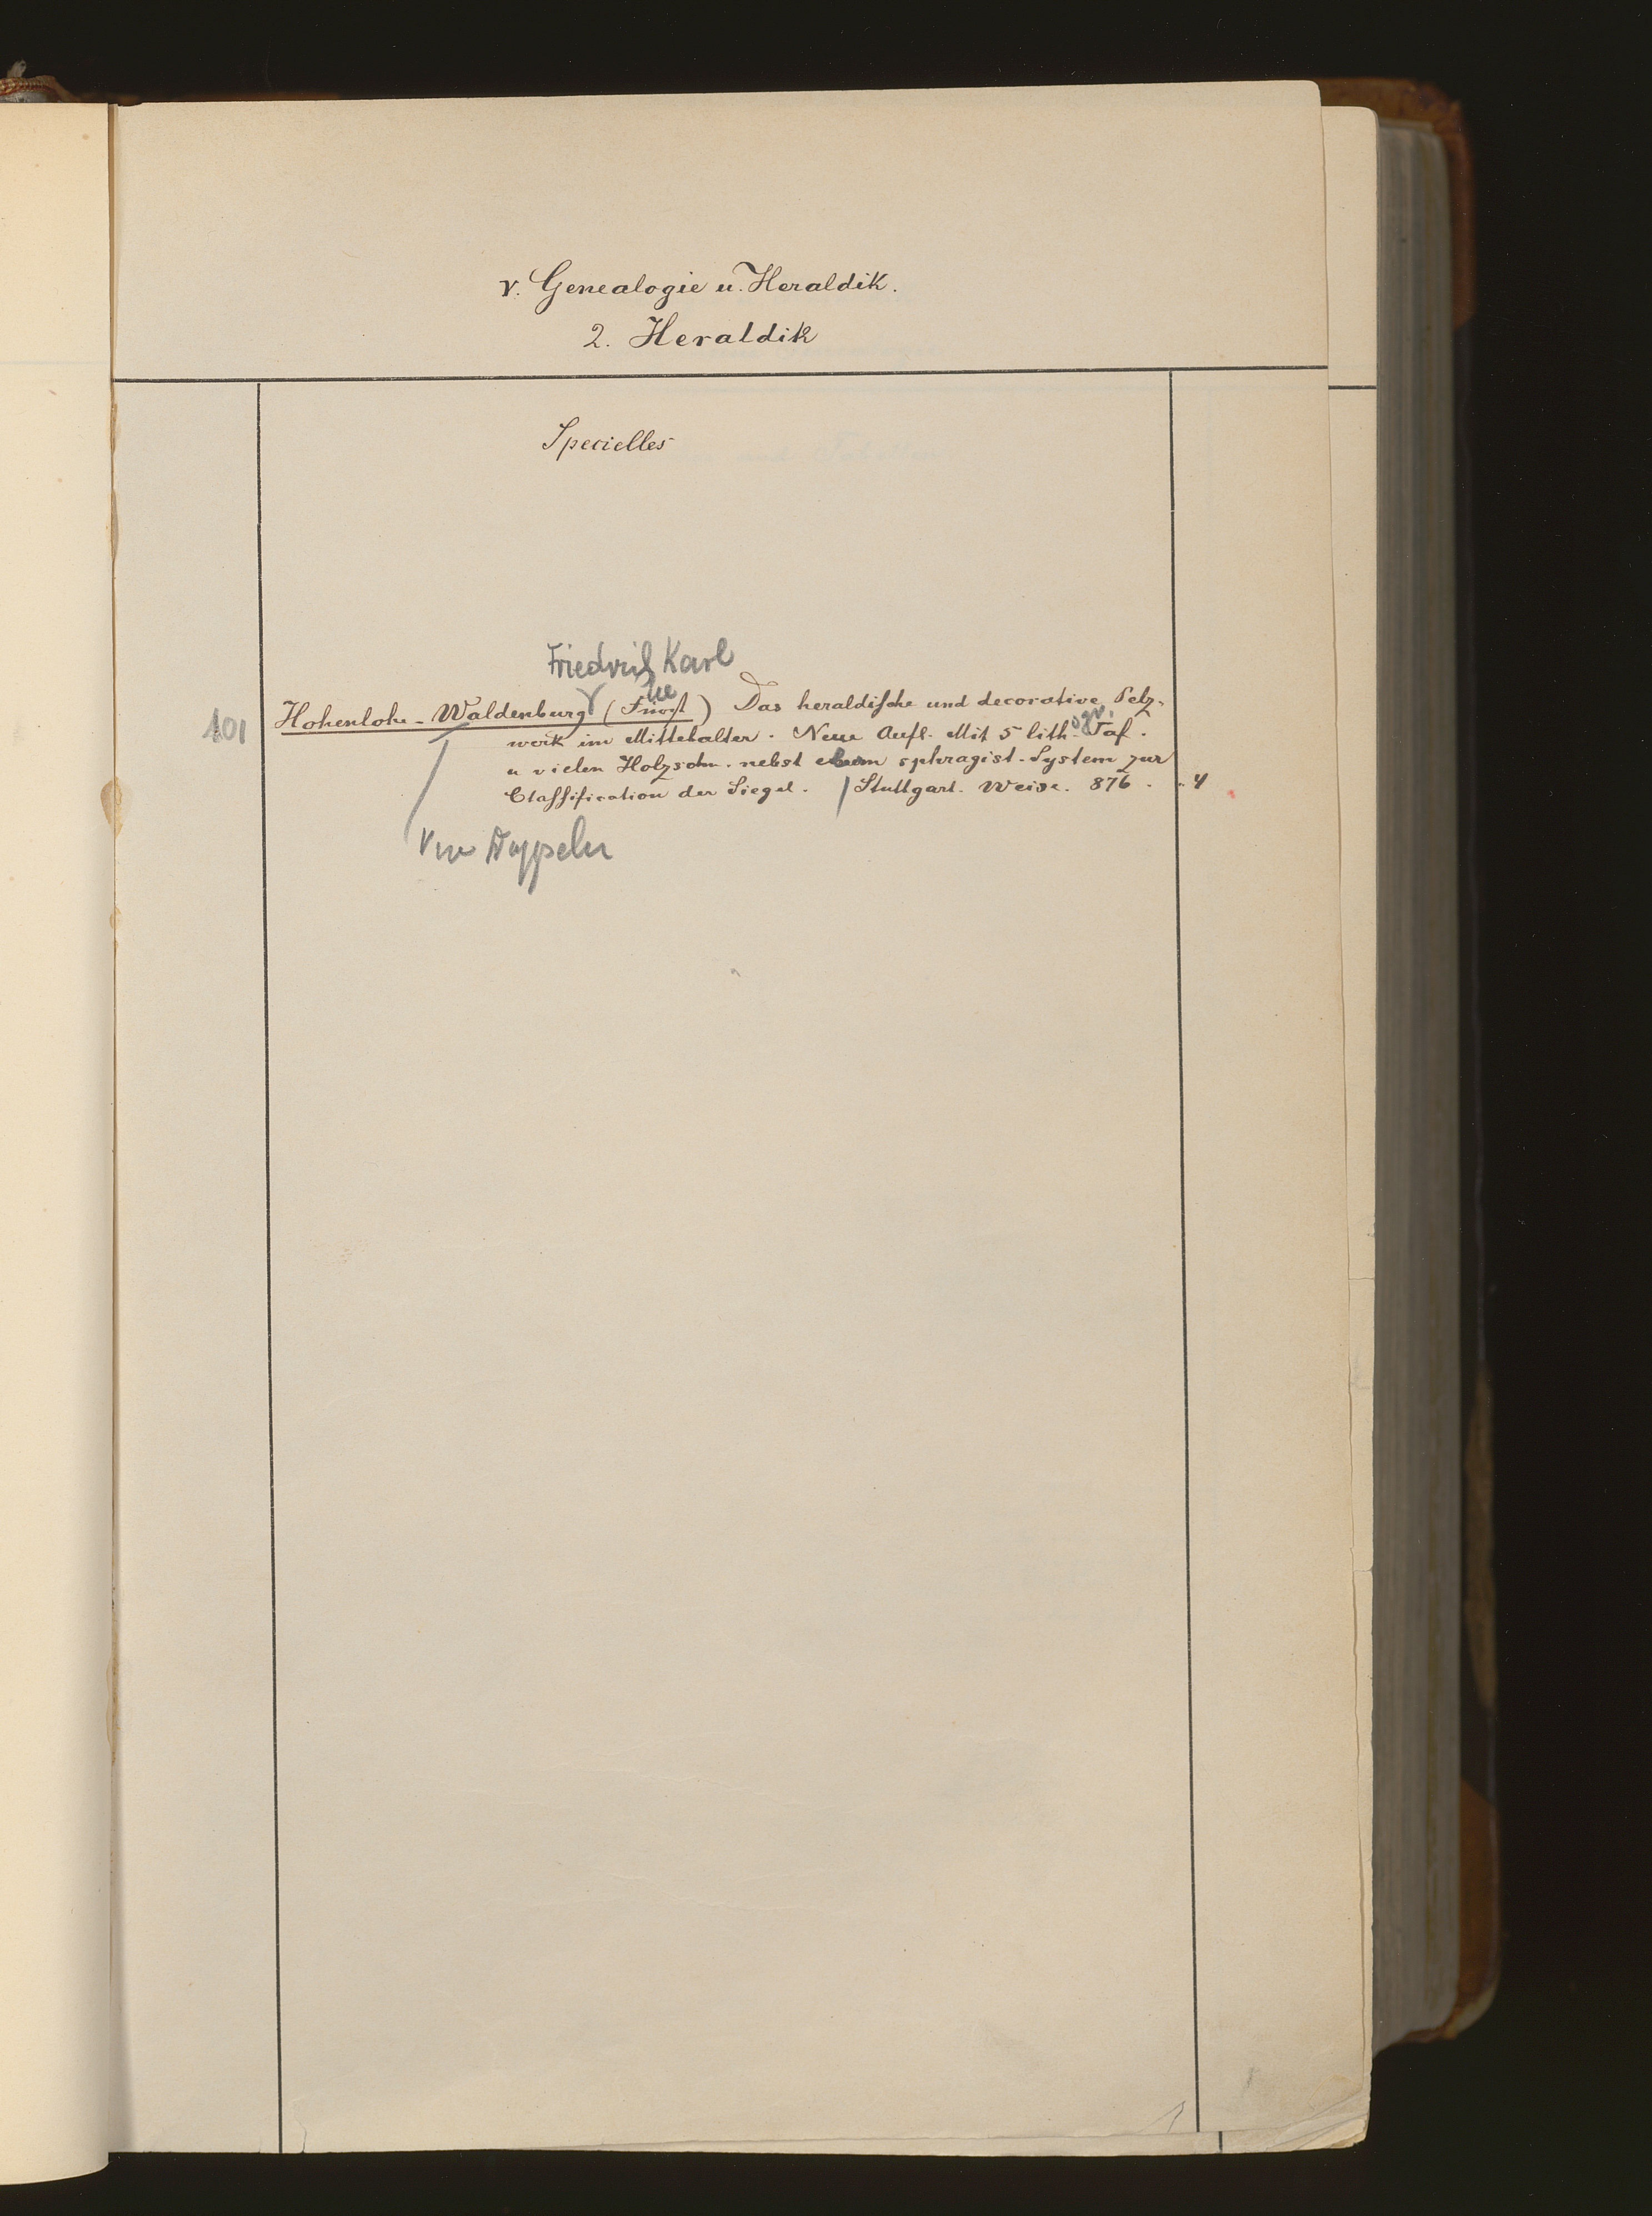 γ. Genealogie u. Heraldik.
2. Heraldik
Specielles
Friedrich Karl
101 Hohenlohe-Waldenburg (Fürst) Das heraldische und decorative Pelz-
werk im Mittelalter. Neue Aufl. Mit 5 lithogr. Taf.
u vielen Holzschn. nebst einem sphragist. System zur
Classification der Siegel. / Stuttgart. Weise. 876. 4